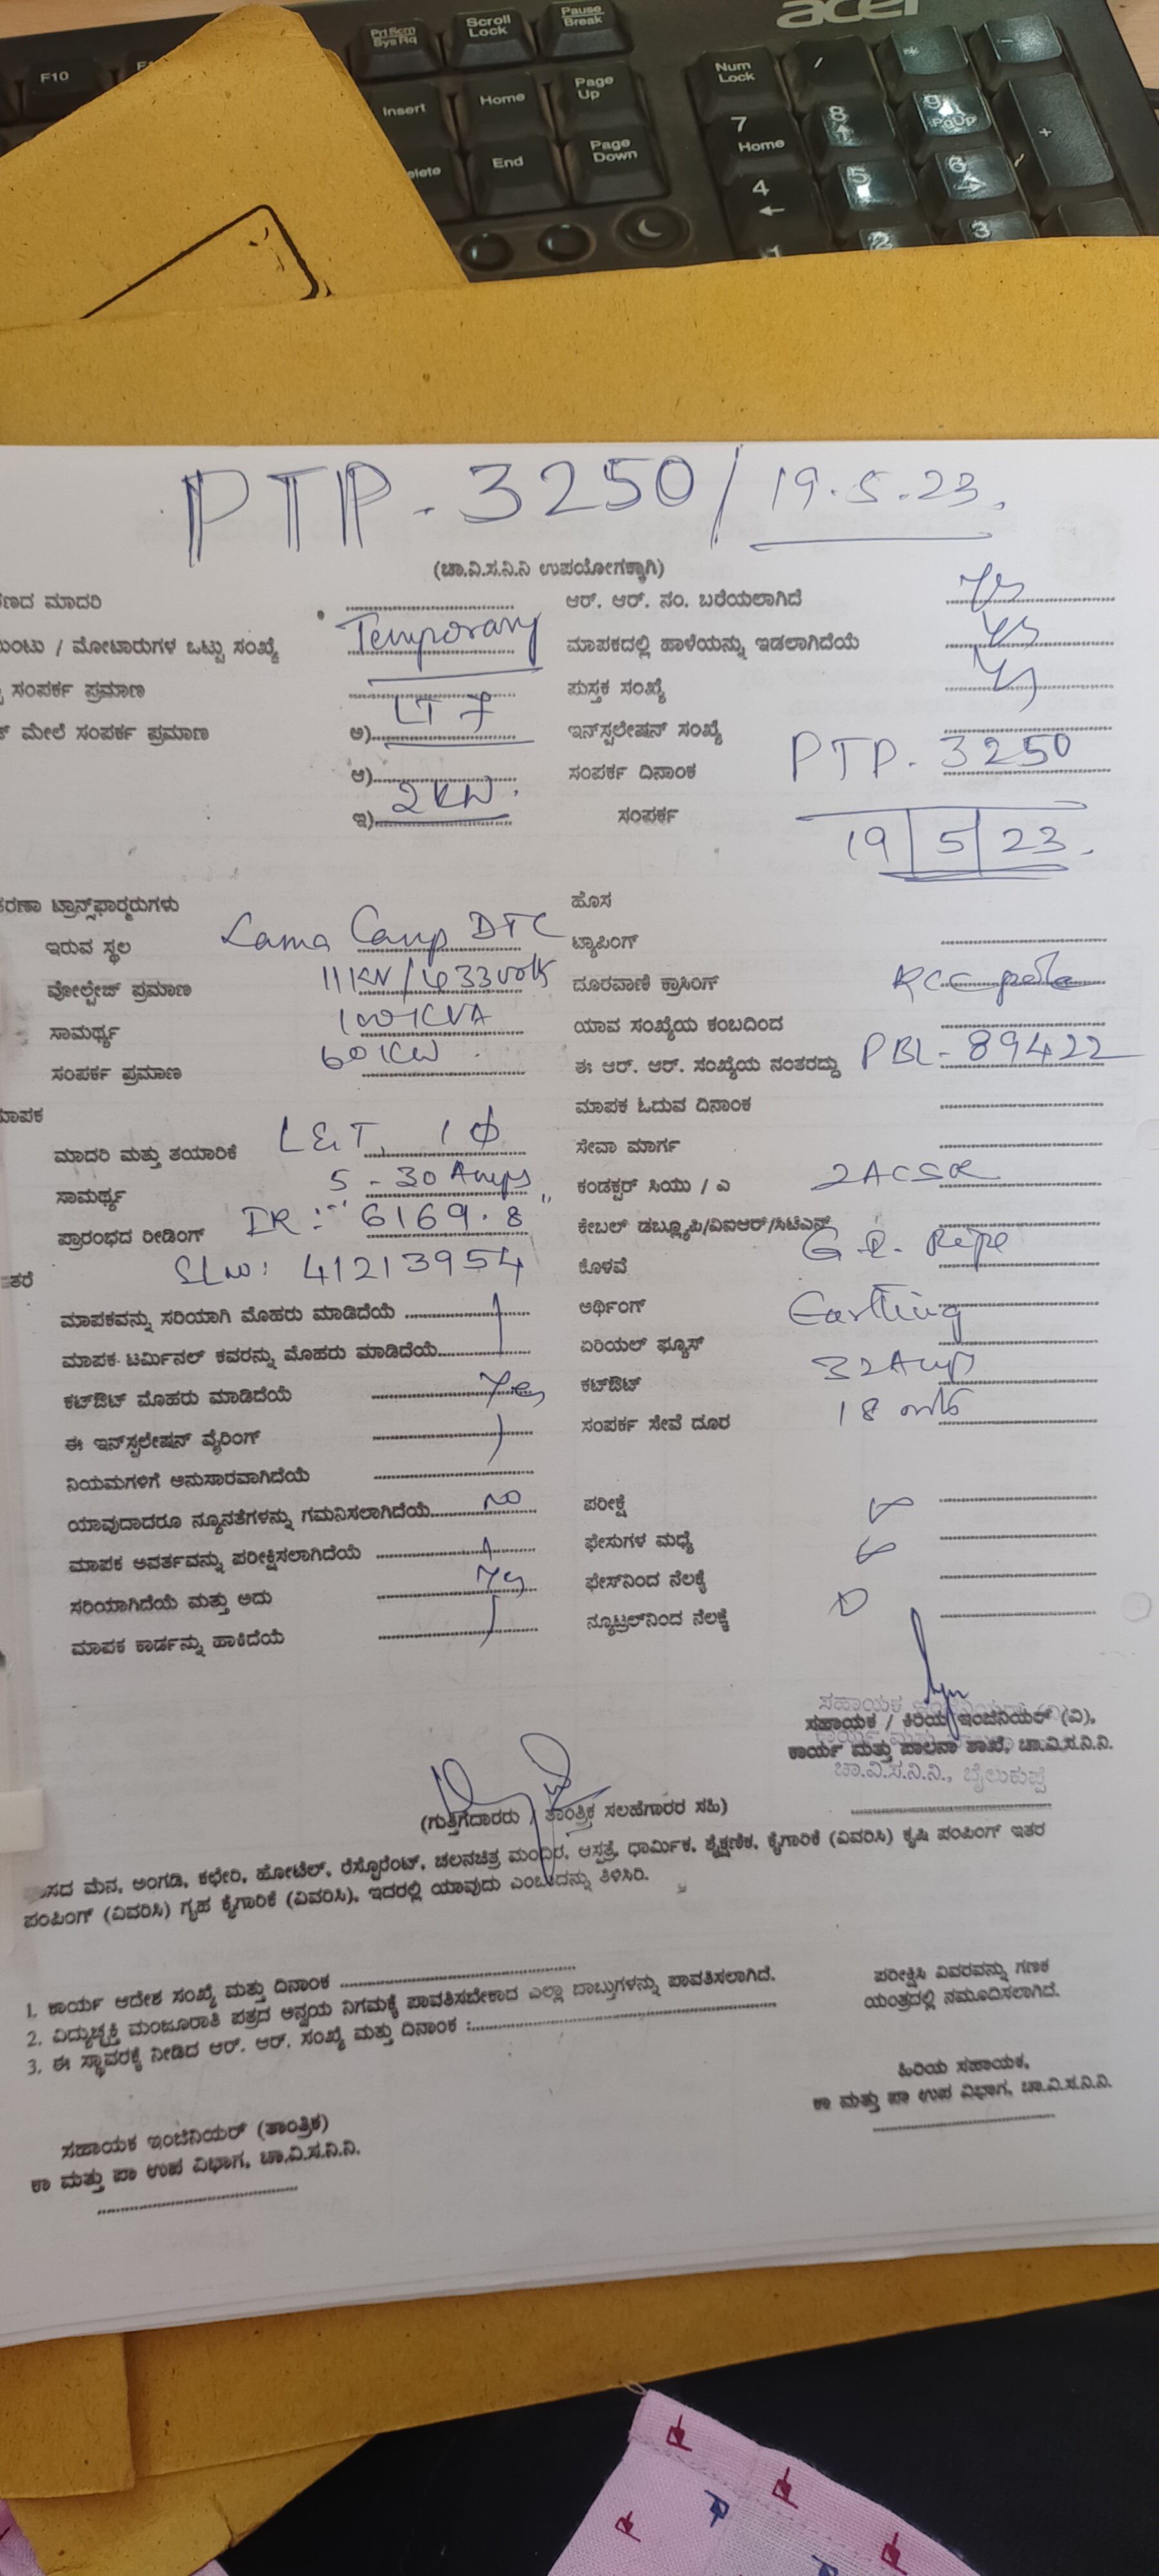 acer
F10
Prt Scrn
Sys Rq
Scroll
Lock
Pause
Break
Insert
Home
Page
Up
Num
Lock
/
-
End
Page
Down
7
Home
8
9
PgUp
+
4
5
6
2
3
PTP. 3250/19.5.23.
(ಚಾ.ವಿ.ಸ.ನಿ.ನಿ ಉಪಯೋಗಕ್ಕಾಗಿ)
ಮಾದರಿ
/ ಮೋಟಾರುಗಳ ಒಟ್ಟು ಸಂಖ್ಯೆ Temporary
ಸಂಪರ್ಕ ಪ್ರಮಾಣ
ಮೇಲೆ ಸಂಪರ್ಕ ಪ್ರಮಾಣ ಅ) LT 7
ಆ)
ಇ) 2 KW.
ಆರ್. ಆರ್. ನಂ. ಬರೆಯಲಾಗಿದೆ Yes
ಮಾಪಕದಲ್ಲಿ ಹಾಳೆಯನ್ನು ಇಡಲಾಗಿದೆಯೆ Yes
ಪುಸ್ತಕ ಸಂಖ್ಯೆ Yes
ಇನ್‌ಸ್ಟಲೇಷನ್ ಸಂಖ್ಯೆ
ಸಂಪರ್ಕ ದಿನಾಂಕ PTP. 3250
ಸಂಪರ್ಕ 19/5/23.
ಟ್ರಾನ್ಸ್‌ಫಾರ್ಮರುಗಳು
ಇರುವ ಸ್ಥಲ Lama Camp DTC
ವೋಲ್ಟೇಜ್ ಪ್ರಮಾಣ 11KV/433volts
ಸಾಮರ್ಥ್ಯ 100KVA
ಸಂಪರ್ಕ ಪ್ರಮಾಣ 60KW
ಹೊಸ
ಟ್ಯಾಪಿಂಗ್
ದೂರವಾಣಿ ಕ್ರಾಸಿಂಗ್ RCC pole
ಯಾವ ಸಂಖ್ಯೆಯ ಕಂಬದಿಂದ
ಈ ಆರ್. ಆರ್. ಸಂಖ್ಯೆಯ ನಂತರದ್ದು PBL-89422
ಮಾಪಕ ಓದುವ ದಿನಾಂಕ
ಮಾಪಕ
ಮಾದರಿ ಮತ್ತು ತಯಾರಿಕೆ L&T, 1Φ
ಸಾಮರ್ಥ್ಯ 5-30 Amps
ಪ್ರಾರಂಭದ ರೀಡಿಂಗ್ IR:" 6169.8"
ಇತರೆ SLNo: 41213954
ಸೇವಾ ಮಾರ್ಗ
ಕಂಡಕ್ಟರ್ ಸಿಯು / ಎ 2ACSR
ಕೇಬಲ್ ಡಬ್ಲ್ಯೂಪಿ/ವಿಐಆರ್/ಸಿಟಿಎಸ್
ಕೊಳವೆ G.I. Pipe
ಅರ್ಥಿಂಗ್ Earthing
ಏರಿಯಲ್ ಫ್ಯೂಸ್
ಕಟ್‌ಔಟ್ 32Amp
ಸಂಪರ್ಕ ಸೇವೆ ದೂರ 18 mts
ಮಾಪಕವನ್ನು ಸರಿಯಾಗಿ ಮೊಹರು ಮಾಡಿದೆಯೆ
ಮಾಪಕ ಟರ್ಮಿನಲ್ ಕವರನ್ನು ಮೊಹರು ಮಾಡಿದೆಯೆ
ಕಟ್‌ಔಟ್ ಮೊಹರು ಮಾಡಿದೆಯೆ Yes
ಈ ಇನ್‌ಸ್ಟಲೇಷನ್ ವೈರಿಂಗ್
ನಿಯಮಗಳಿಗೆ ಅನುಸಾರವಾಗಿದೆಯೆ
ಯಾವುದಾದರೂ ನ್ಯೂನತೆಗಳನ್ನು ಗಮನಿಸಲಾಗಿದೆಯೆ No
ಮಾಪಕ ಅವರ್ತವನ್ನು ಪರೀಕ್ಷಿಸಲಾಗಿದೆಯೆ
ಸರಿಯಾಗಿದೆಯೆ ಮತ್ತು ಅದು Yes
ಮಾಪಕ ಕಾರ್ಡನ್ನು ಹಾಕಿದೆಯೆ
ಪರೀಕ್ಷೆ ∞
ಫೇಸುಗಳ ಮಧ್ಯೆ ∞
ಫೇಸ್‌ನಿಂದ ನೆಲಕ್ಕೆ
ನ್ಯೂಟ್ರಲ್‌ನಿಂದ ನೆಲಕ್ಕೆ
ಸಹಾಯಕ / ಕಿರಿಯ ಇಂಜಿನಿಯರ್ (ವಿ),
ಕಾರ್ಯ ಮತ್ತು ಪಾಲನಾ ಶಾಖೆ, ಚಾ.ವಿ.ಸ.ನಿ.ನಿ.
ಚಾ.ವಿ.ಸ.ನಿ.ನಿ., ಬೈಲುಕುಪ್ಪೆ
(ಗುತ್ತಿಗೆದಾರರು / ತಾಂತ್ರಿಕ ಸಲಹೆಗಾರರ ಸಹಿ)
ಮನೆ, ಅಂಗಡಿ, ಕಛೇರಿ, ಹೋಟೆಲ್, ರೆಸ್ಟೋರೆಂಟ್, ಚಲನಚಿತ್ರ ಮಂದಿರ, ಆಸ್ಪತ್ರೆ, ಧಾರ್ಮಿಕ, ಶೈಕ್ಷಣಿಕ, ಕೈಗಾರಿಕೆ (ವಿವರಿಸಿ) ಕೃಷಿ ಪಂಪಿಂಗ್ ಇತರ
ಪಂಪಿಂಗ್ (ವಿವರಿಸಿ) ಗೃಹ ಕೈಗಾರಿಕೆ (ವಿವರಿಸಿ), ಇದರಲ್ಲಿ ಯಾವುದು ಎಂಬುದನ್ನು ತಿಳಿಸಿರಿ.
1. ಕಾರ್ಯ ಆದೇಶ ಸಂಖ್ಯೆ ಮತ್ತು ದಿನಾಂಕ
2. ವಿದ್ಯುಚ್ಛಕ್ತಿ ಮಂಜೂರಾತಿ ಪತ್ರದ ಅನ್ವಯ ನಿಗಮಕ್ಕೆ ಪಾವತಿಸಬೇಕಾದ ಎಲ್ಲಾ ಬಾಬ್ತುಗಳನ್ನು ಪಾವತಿಸಲಾಗಿದೆ.
3. ಈ ಸ್ಥಾವರಕ್ಕೆ ನೀಡಿದ ಆರ್. ಆರ್. ಸಂಖ್ಯೆ ಮತ್ತು ದಿನಾಂಕ :
ಪರೀಕ್ಷಿಸಿ ವಿವರವನ್ನು ಗಣಕ
ಯಂತ್ರದಲ್ಲಿ ನಮೂದಿಸಲಾಗಿದೆ.
ಹಿರಿಯ ಸಹಾಯಕ,
ಕಾ ಮತ್ತು ಪಾ ಉಪ ವಿಭಾಗ, ಚಾ.ವಿ.ಸ.ನಿ.ನಿ.
ಸಹಾಯಕ ಇಂಜಿನಿಯರ್ (ತಾಂತ್ರಿಕ)
ಕಾ ಮತ್ತು ಪಾ ಉಪ ವಿಭಾಗ, ಚಾ.ವಿ.ಸ.ನಿ.ನಿ.